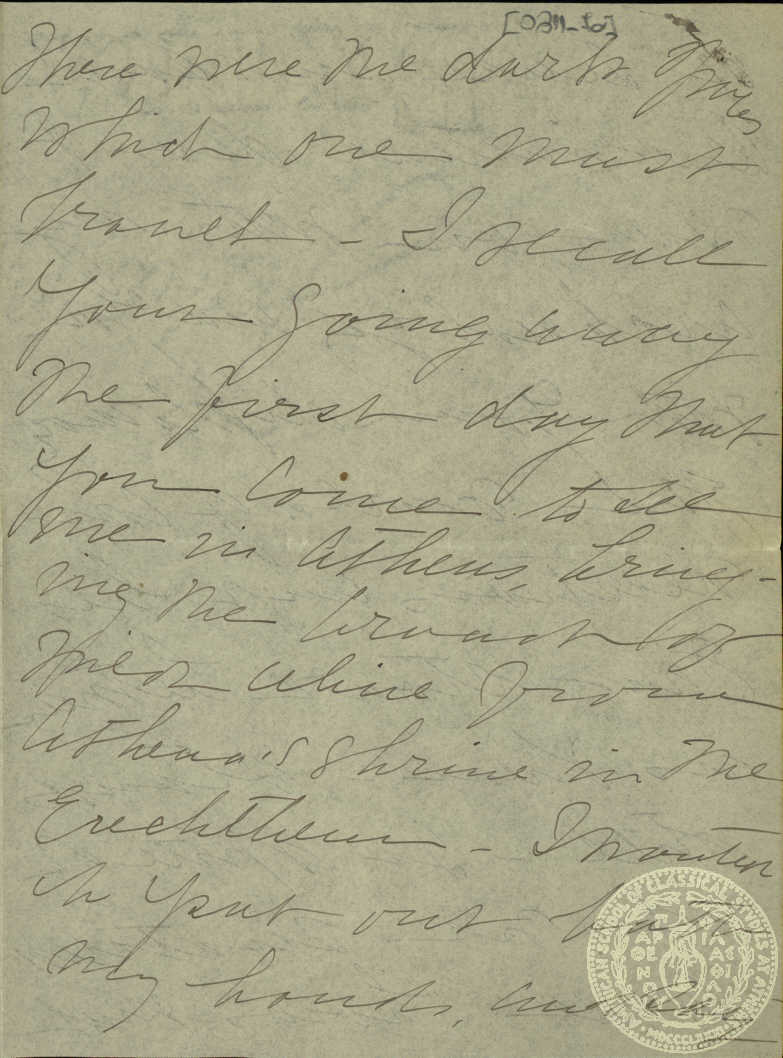 There were the dark
which one must
travel - I recall
your going away
the first day that
you come to see
me in Athens, bring-
ing the branch of
wild olive from
Athena's shrine in the
Erechtheum - I wanted
to put out both
my hands, and
AMERICAN SCHOOL OF CLASSICAL STUDIES AT ATHENS
ΠΑΡ ΙΑΣ
ΘΕ ΑΦΙ
ΝΟ Λ